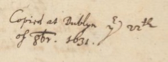 Copied at Dublyn } 22th
of 8br. 1631.